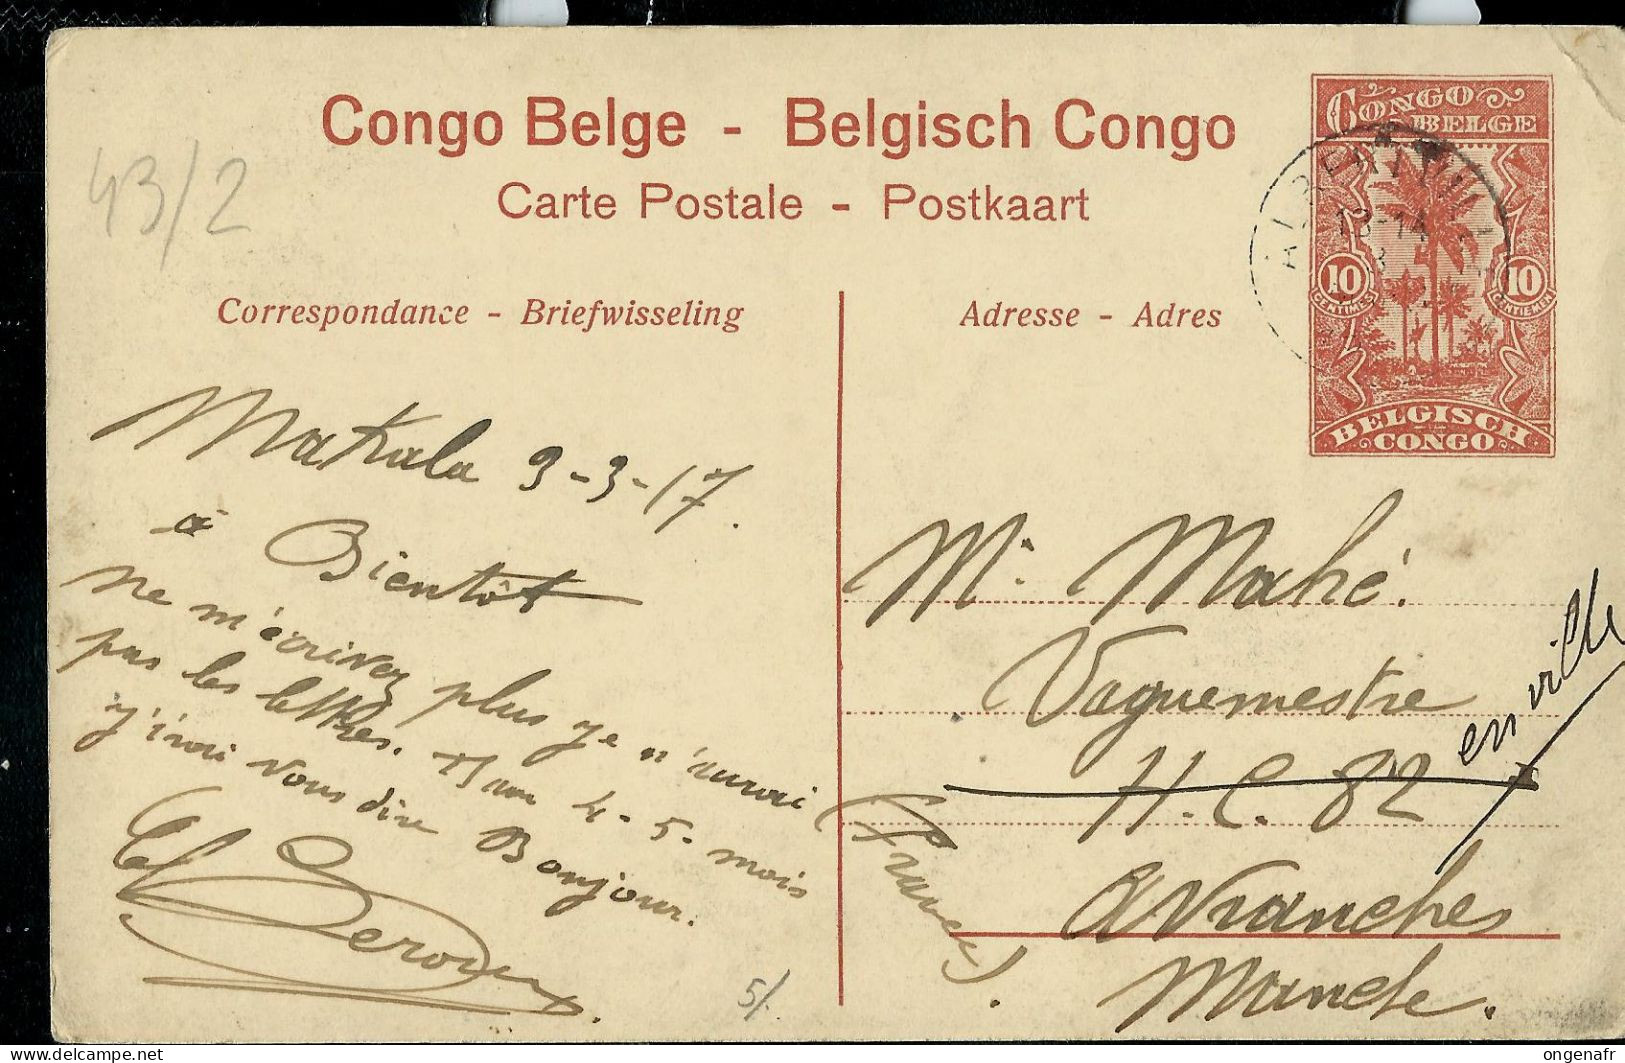 Congo Belge - Belgisch Congo
Carte Postale - Postkaart
43/2
CONGO
BELGE
13-14
10
CENTIMES
10
CENTIEMEN
BELGISCH
CONGO
Correspondance - Briefwisseling
Adresse - Adres
Makala 9-3-17.
à Bientôt
ne m'écrivez plus je n'aurai
pas les lettres. 4-5- mois
j'irai vous dire Bonjour.
5/.
Mr Mahé.
Vaguemestre
H.C. 82
en ville
Avranches
Manche.
(France).
delcampe.net
ongenafr